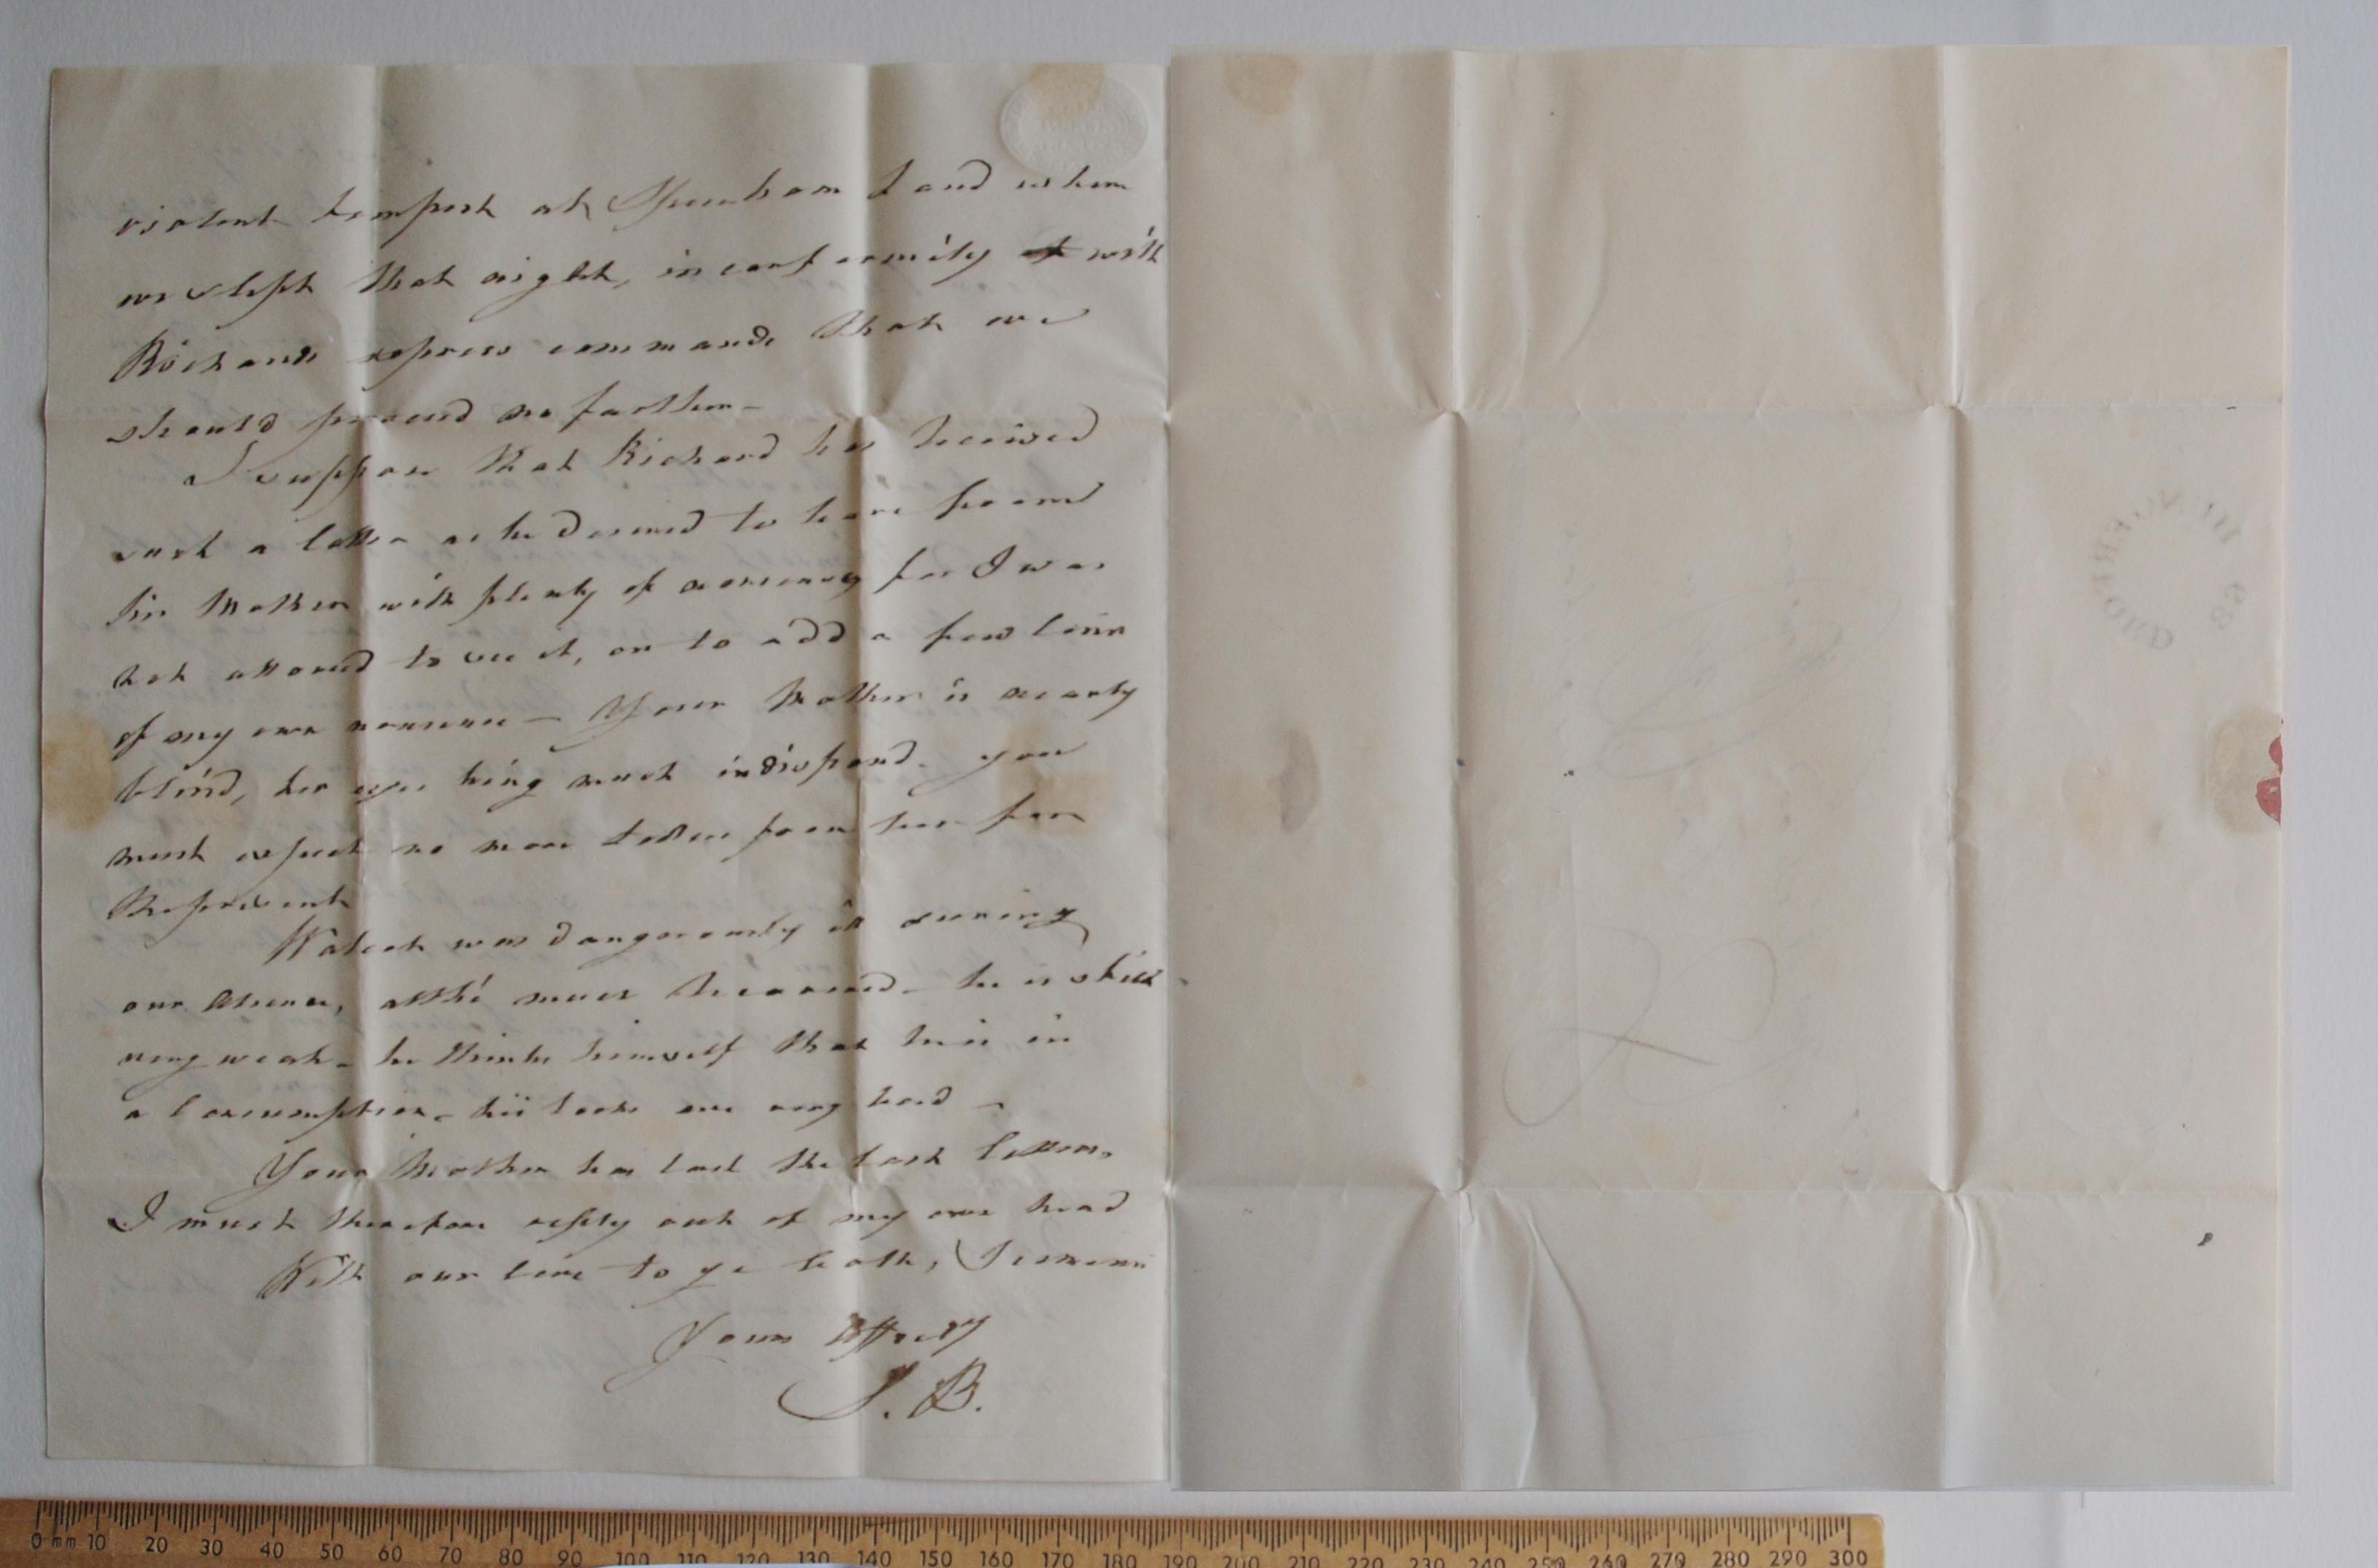 violent tempest at Speenham Land where
we slept that night, in conformity of with
Richards express commands that we
should proceed no farther—
I suppose that Richard has received
such a letter as he deemed to have from
his Mother with plenty of for I was
not allowed to see it, or to add a few lines
of my own nonsense — Your Mother is nearly
blind, her eyes being much indisposed. you
must expect no more letters from her for
the present
was dangerously ill during
our absence, altho' much recovered – he is still
very weak – he thinks himself that he is in
a Consumption – his looks are very bad —
Your Mother has lost the last letter,
I must therefore reply out of my own head
With our love to ye both, I remain
Yours Affecly
J. B.
0 mm 10 20 30 40 50 60 70 80 90 100 110 120 130 140 150 160 170 180 190 200 210 220 230 240 250 260 270 280 290 300